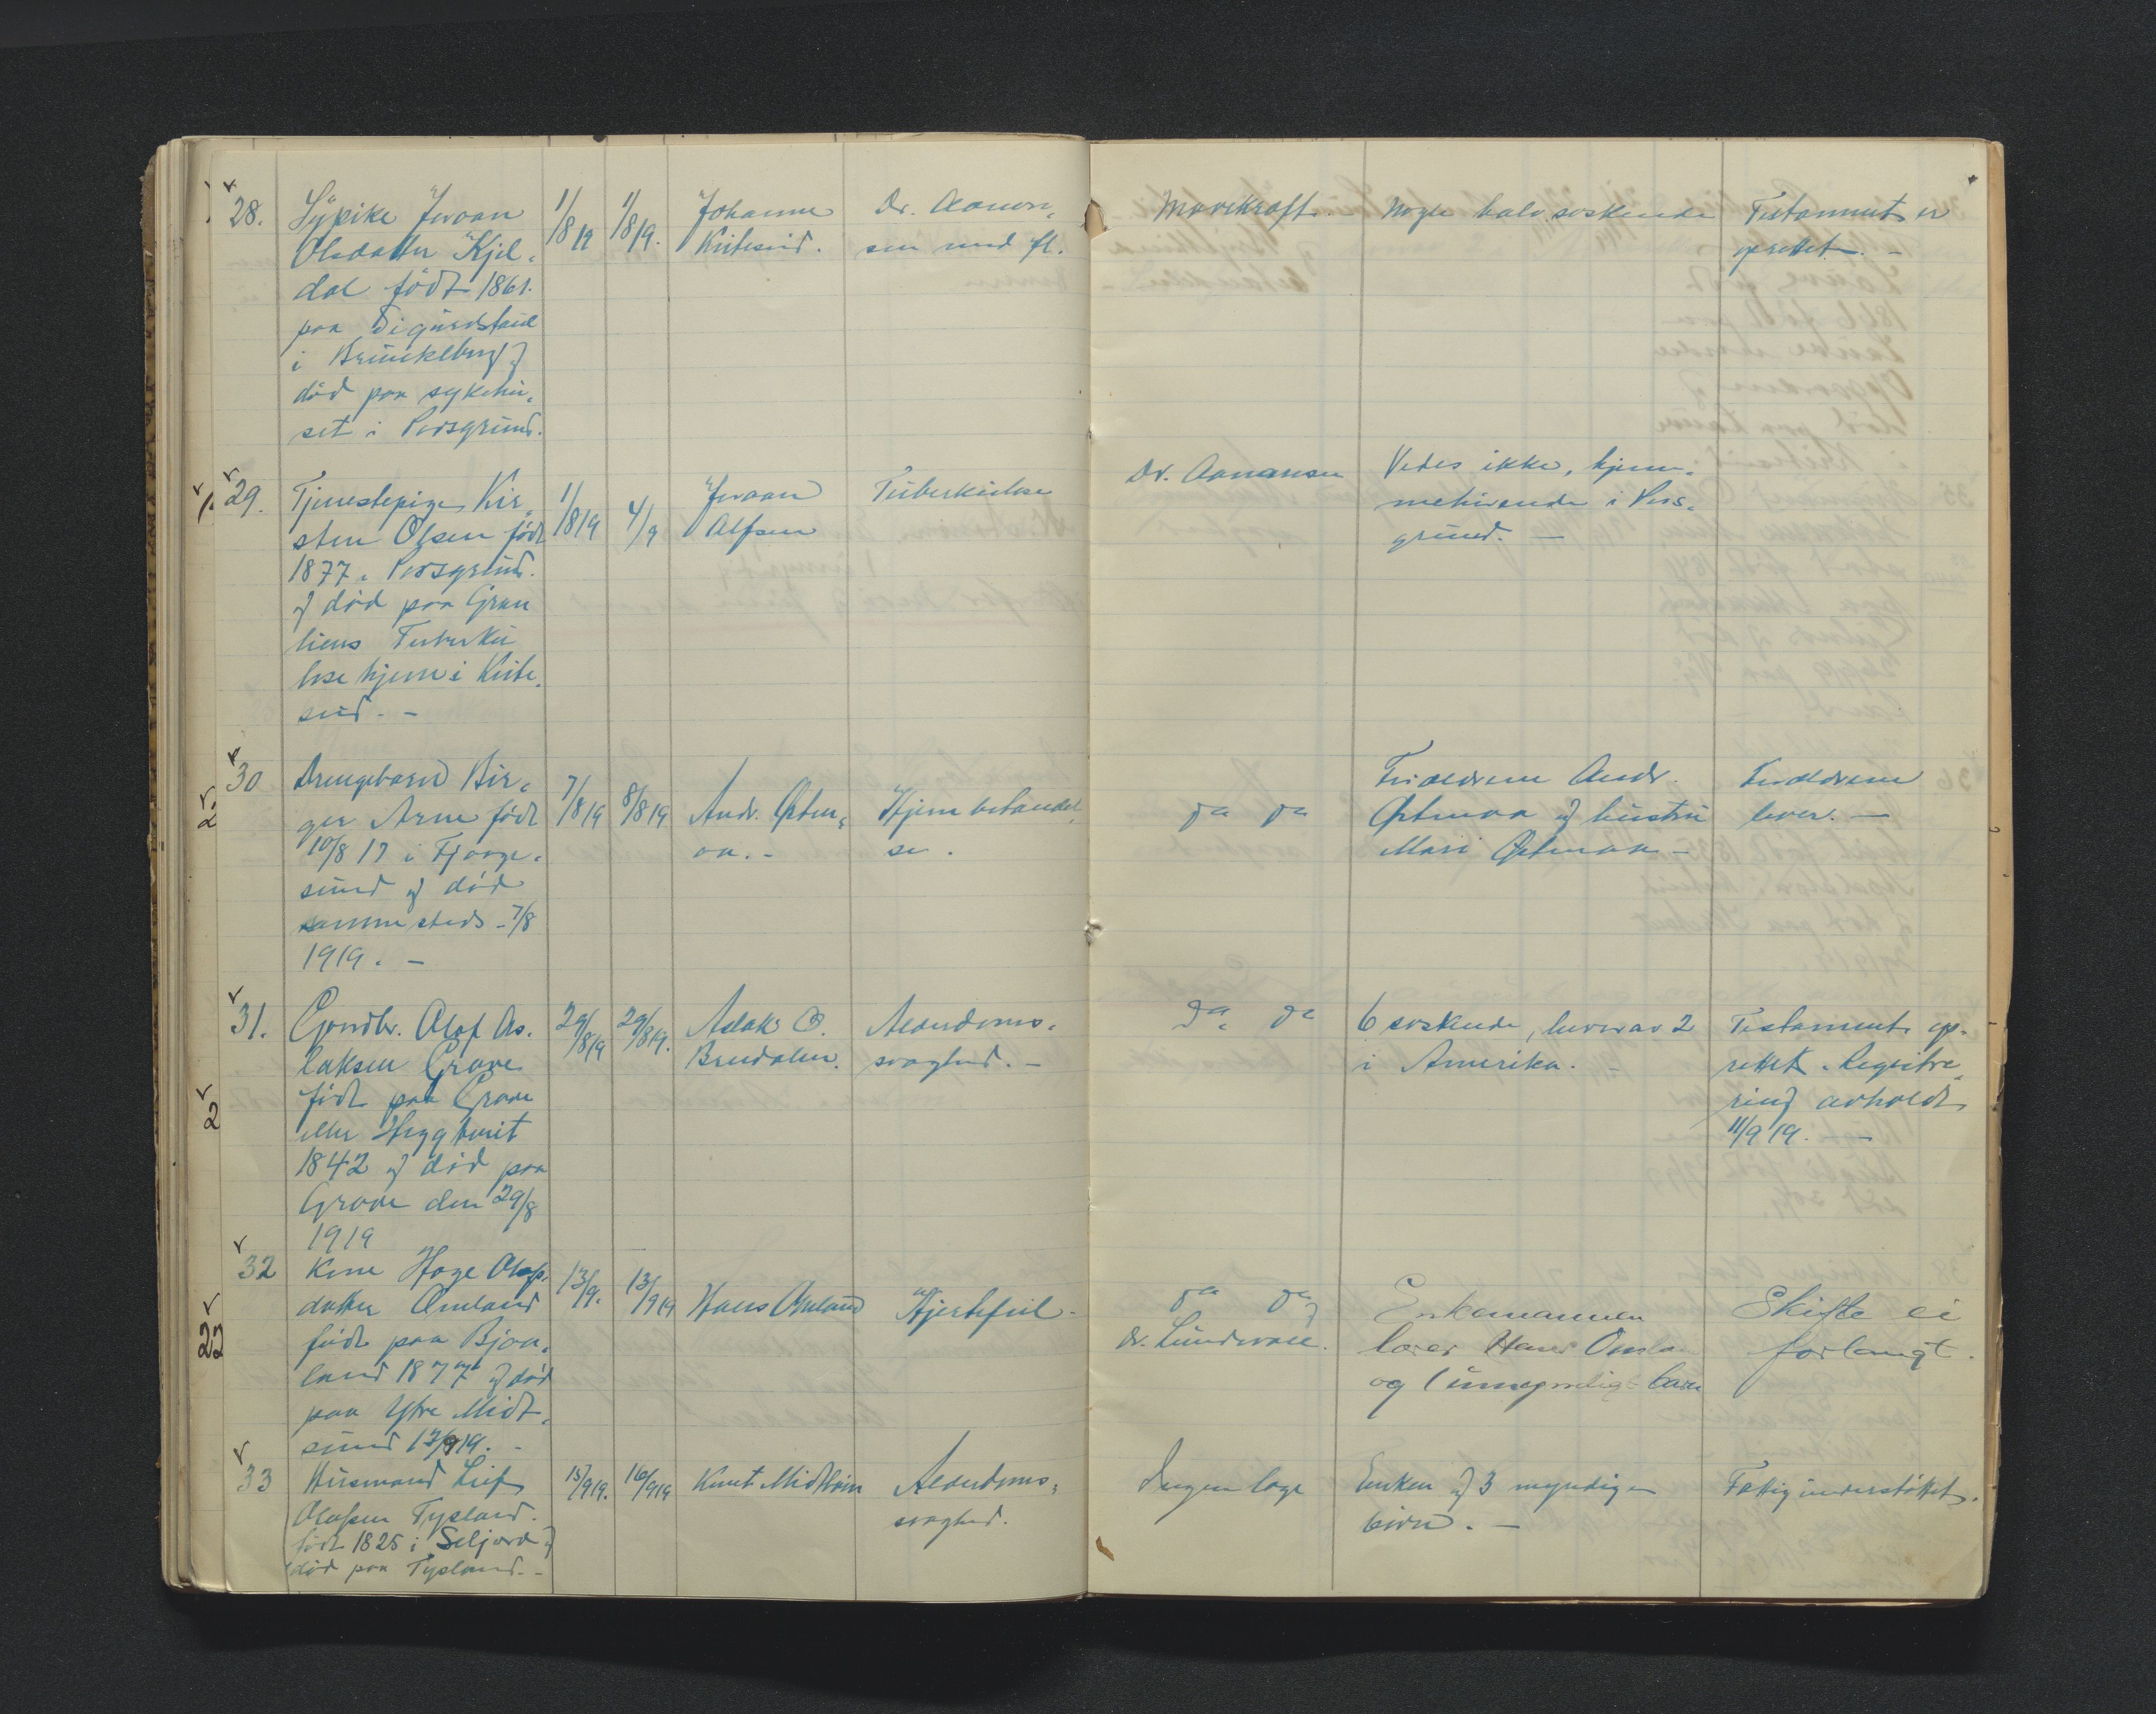 28.
Sypike Joraan
Olsdatter Kjil-
dal født 1861.
paa Sigurdstaul
i Brunkeberg &
død paa sykehu-
set i Porsgrund.
1/8 19
1/8 19.
Johanne
Kvitesund.
Dr. Aanon-
sen med fl.
Mavekræft.
Nogle halvsøskende
Testament er
oprettet. -
29.
Tjenestepige Kir-
sten Olsen født
1877 i Porsgrund.
& død paa Gran
liens Tuberku
lose hjem i Kvite-
sud. -
1/8 19
4/9
Joraan
Alfsen
Tuberkulose
Dr. Aanonsen
Vides ikke, hjem-
mehørende i Pors-
grund. -
30
Drengebarn Bir-
ger Arne født
10/8 17 i Fjaage-
sund & død
samme steds - 7/8
1919. -
7/8 19
8/8 19
Andr. Østm-
oa. -
Hjem behandel-
se.
Da Da
Forældrene Andr.
Østmoa & hustru
Mari Østmoa -
Forældrene
lever. -
31.
Gaardbr. Olaf As-
laksen Grave
født paa Grave
eller Heggtveit
1842 & død paa
Grave den 29/8
1919
29/8 19
29/8 19.
Aslak O.
Brudalen.
Alderdoms-
svaghed. -
Da Da
6 søskende, hvorav 2
i Amerika. -
Testament op-
rettet. Registre-
ring avholdt
11/9 19. -
32
Kone Hæge Olafs-
datter Omland
født paa Bjaa-
land 1877 & død
paa Ytre Midt-
sund 13/9 19. -
13/9.
13/9 19
Hans Omland
Hjertefeil -
Da Da &
dr. Lundevall.
Enkemannen
lærer Hans Omla
og 1 umyndig barn
Skifte ei
forlangt.
33
Husmand Leif
Olafsen Tysland.
født 1825 i Seljord &
død paa Tysland. -
15/9 19.
16/9 19
Knut Midtbøen
Alderdoms-
svaghed.
Ingen læge
Enken & 3 myndige
børn. -
Fattigunderstøttet.